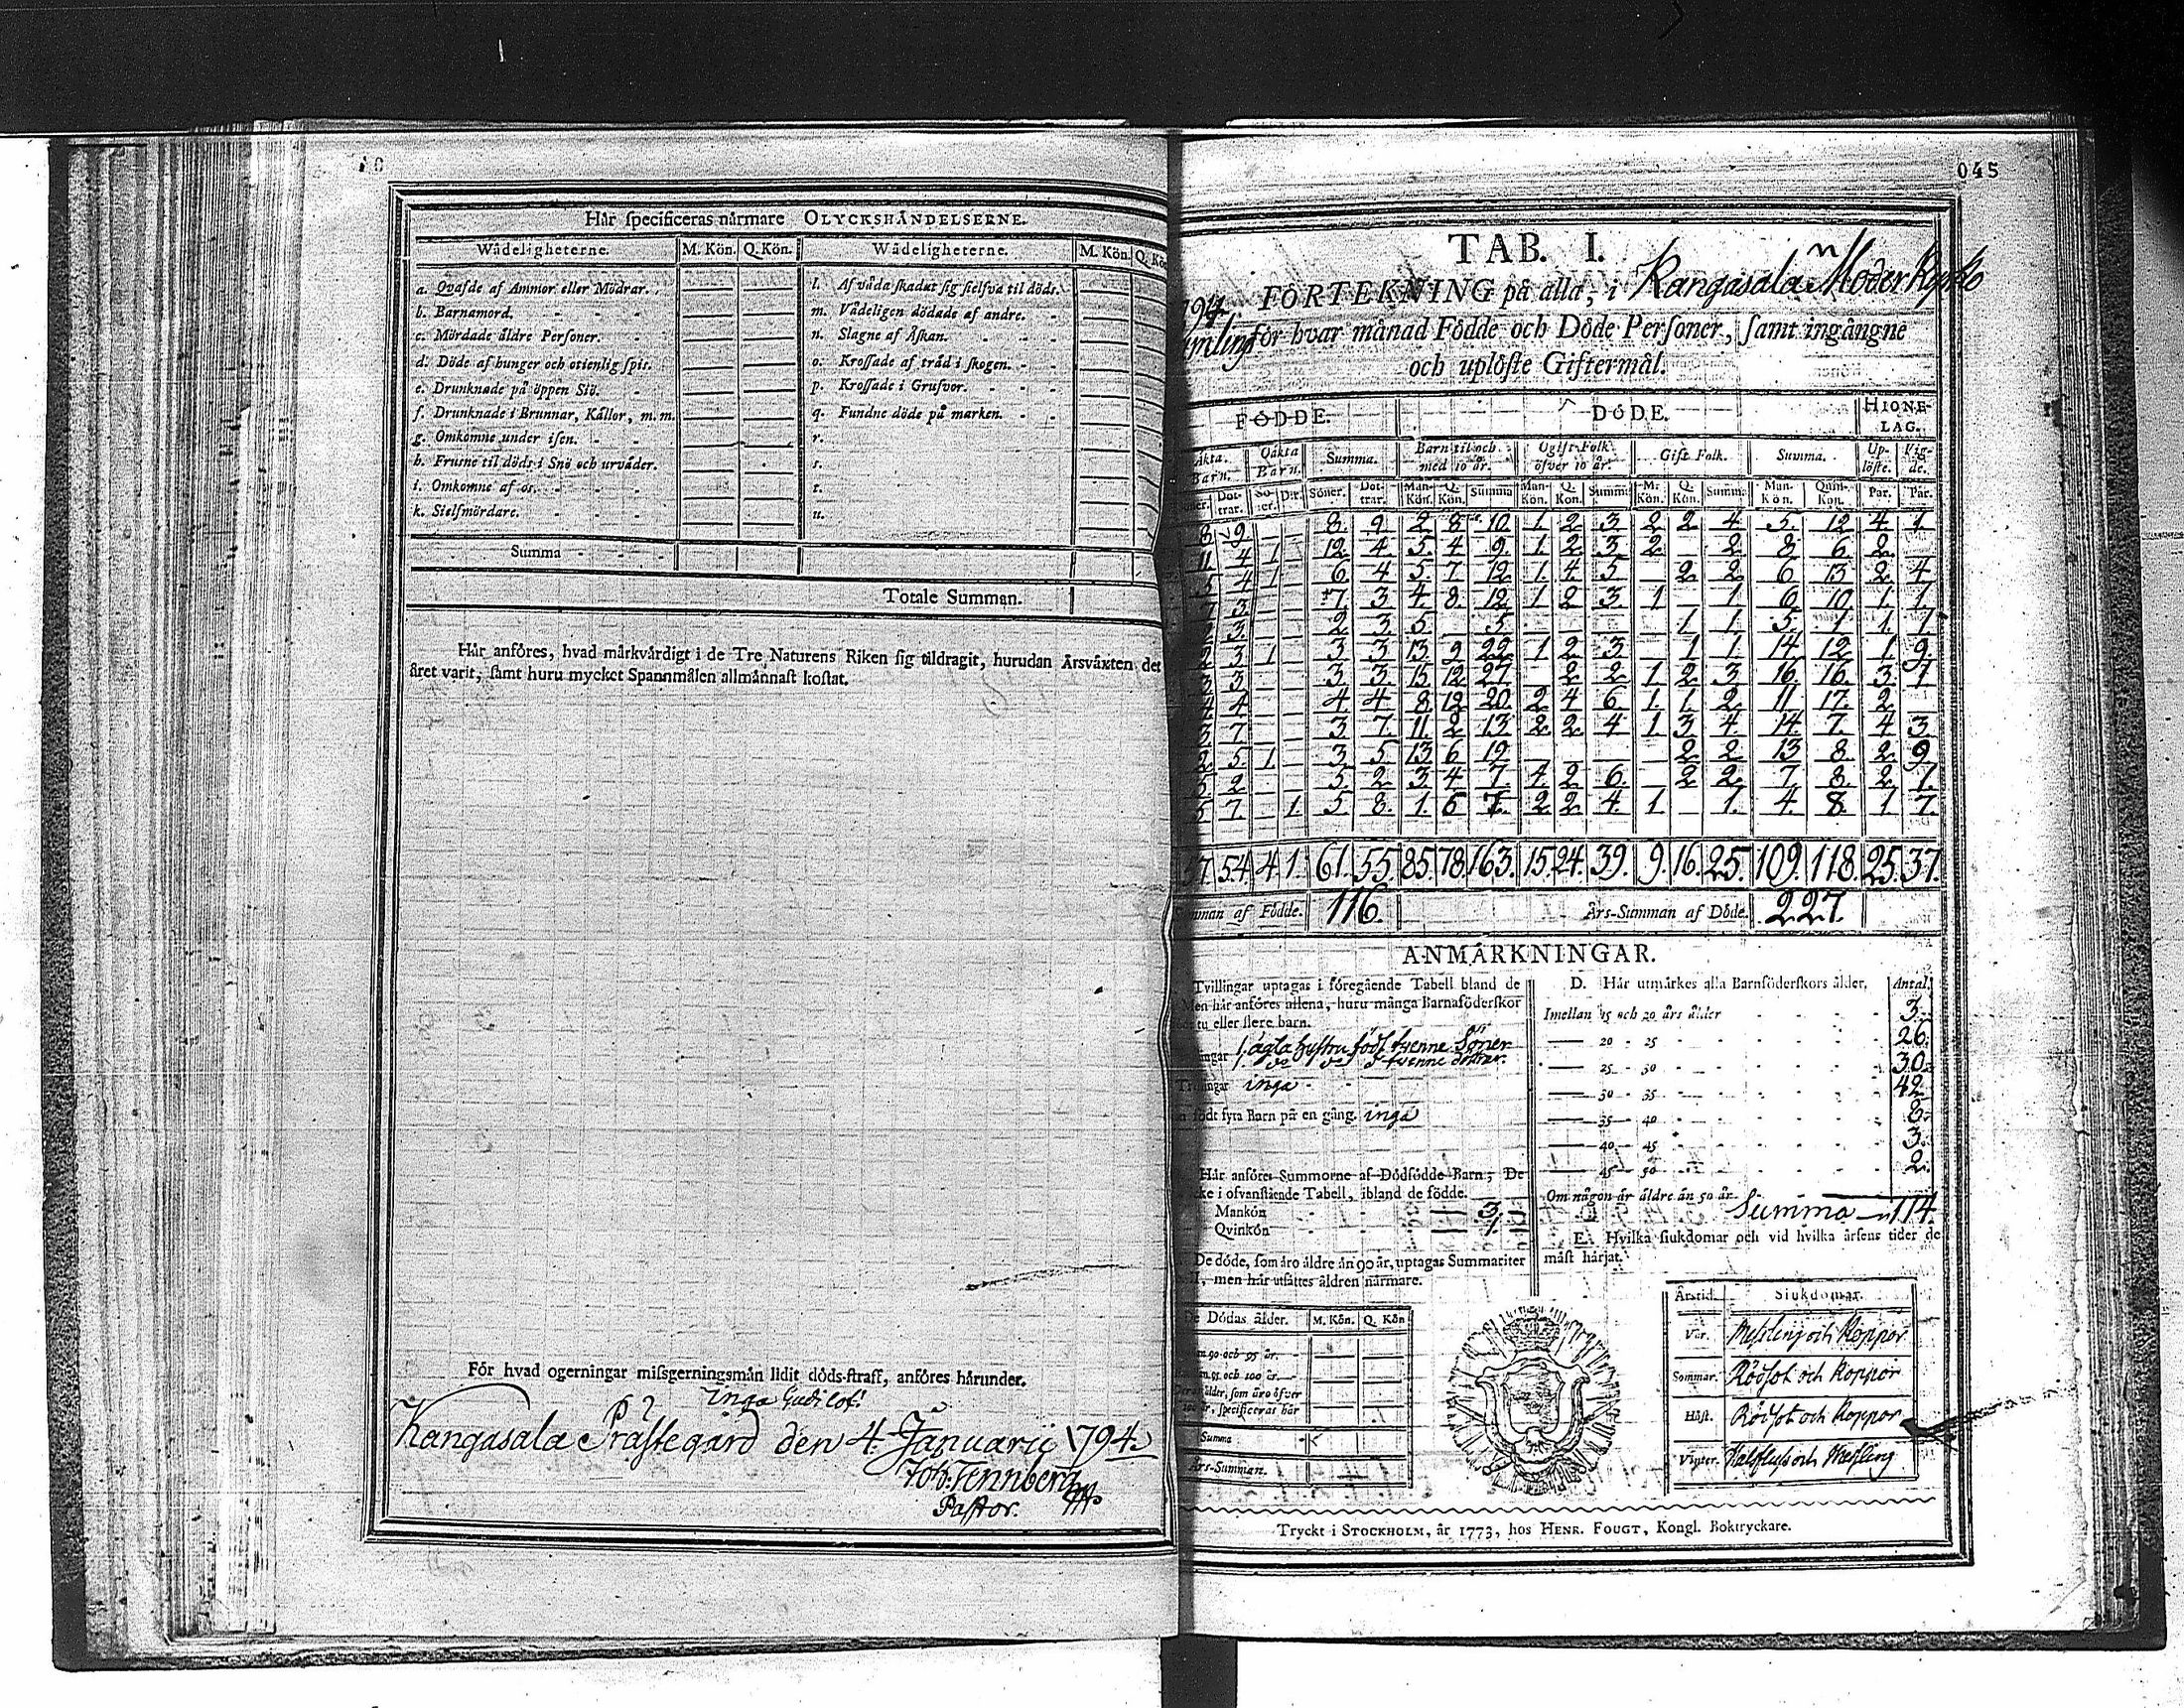 Här specificeras närmare OLYCKSHÄNDELSERNE.
Wådeligheterne. M. Kön. Q. Kön. Wådeligheterne. M. Kön. Q. Kön
a. Qvafde af Ammor eller Mödrar. l. Af våda skadat sig sielfva til döds.
b. Barnamord. m. Vådeligen dödade af andre.
c. Mördade äldre Personer. n. Slagne af Åskan.
d. Döde af hunger och otienlig spis. o. Krossade af träd i skogen.
e. Drunknade på öppen Siö. p. Krossade i Grufvor.
f. Drunknade i Brunnar, Källor, m. m. q. Fundne döde på marken.
g. Omkomne under isen. r.
h. Frusne til döds i Snö och urväder. s.
i. Omkomne af os. t.
k. Sielfmördare. u.
Summa
Totale Summan.
Här anföres, hvad märkvärdigt i de Tre Naturens Riken sig tildragit, hurudan Årsväxten det
året varit, samt huru mycket Spannmålen allmännast kostat.
För hvad ogerningar missgerningsmän lidit döds-straff, anföres härunder.
inga Gudi lof!
Kangasala Prästegård den 4. Januarii 1794.
Joh. Tennberg
Pastor.
045
TAB. I.
794 FÖRTEKNING på alla, i Kangasala Moderkyrko
för hvar månad Födde och Döde Personer, samt ingångne
och uplöste Giftermål.
FÖDDE. DÖDE. HIONE-
LAG.
Äkta Barn. Oäkta Barn. Summa. Barn til och med 10 år. Ogift Folk öfver 10 år. Gift Folk. Summa. Up-löste. Vig-de.
Dot-trar. So-ner. Dr. Söner. Dot-trar. Man-Kön. Q. Kön. Summa Man-Kön. Q. Kön. Summa M. Kön. Q. Kön. Summa Man-Kön. Quin-Kön. Par. Par.
8 9. — — 8. 9. 2 8 10. 1. 2. 3. 2 2 4. 5. 12 4. 1.
11. 4 1 — 12. 4. 5. 4 9. 1. 2. 3. 2. — 2. 8 6 2.
5 4 1 — 6 4 5. 7. 12 1. 4. 5 — 2 2 6 13 2. 4
7 3. — — 7. 3 4. 8. 12. 1 2 3. 1 — 1. 6 10. 1. 1
2 3. — — 2 3. 5. — 5. — — — — 1 1. 5. 1 1. 7
2 3 1 — 3 3 13. 9 22 1 2 3 — 1 1 14 12 1 9.
3 3 — — 3 3. 15 12 27 — 2 2 1 2 3 16. 16. 3. 1
4 4 — — 4 4 8 12 20. 2 4 6 1. 1. 2. 11 17. 2
3 7 — — 3 7. 11. 2 13. 2. 2. 4 1 3 4. 14. 7. 4 3
2. 5. 1. — 3. 5 13 6 19. — — — — 2 2 13 8. 2. 9
5 2 — — 5. 2 3. 4 7. 4. 2 6. — 2 2. 7 8. 2 1.
5 7. — 1. 5 8. 1. 6 7. 2 2. 4. 1 — 1. 4. 8. 1 7.
57. 54. 4. 1. 61. 55. 85. 78. 163. 15. 24. 39. 9. 16. 25. 109. 118. 25. 37.
Summan af Födde. 116. Års-Summan af Döde. 227.
ANMÄRKNINGAR.
Tvillingar uptagas i föregående Tabell bland de
Men här anföres allena, huru många Barnaföderskor
tu eller flere barn.
1. ägta hustru födt tvenne Söner
1. do do d tvenne döttrar.
inga
födt fyra Barn på en gång. inga
Här anföres Summorne af Dödfödde Barn; De
i ofvanstående Tabell, ibland de födde.
Mankön 3.
Qvinkön 1.
De döde, som äro äldre än 90 år, uptagas Summariter
men här utsättes åldren närmare.
De Dödas ålder. M. Kön. Q. Kön
90 och 95 år.
95 och 100 år.
ålder, som äro öfver
år, specificeras här
Summa
Års-Summan.
D. Här utmärkes alla Barnföderskors ålder, Antal.
Imellan 15 och 20 års ålder 3.
20 - 25 26.
25 - 30 30.
30 - 35 42
35 - 40 8.
40 - 45 3.
45 - 50 2.
Om någon är äldre än 50 år.
Summa 114.
E. Hvilka siukdomar och vid hvilka årsens tider de
mäst härjat.
Årstid. Siukdomar.
Vår. Messling och Koppor
Sommar. Rödsot och Koppor
Höst. Rödsot och Koppor
Vinter. Halsfluss och Messling
Tryckt i STOCKHOLM, år 1773, hos HENR. FOUGT, Kongl. Boktryckare.